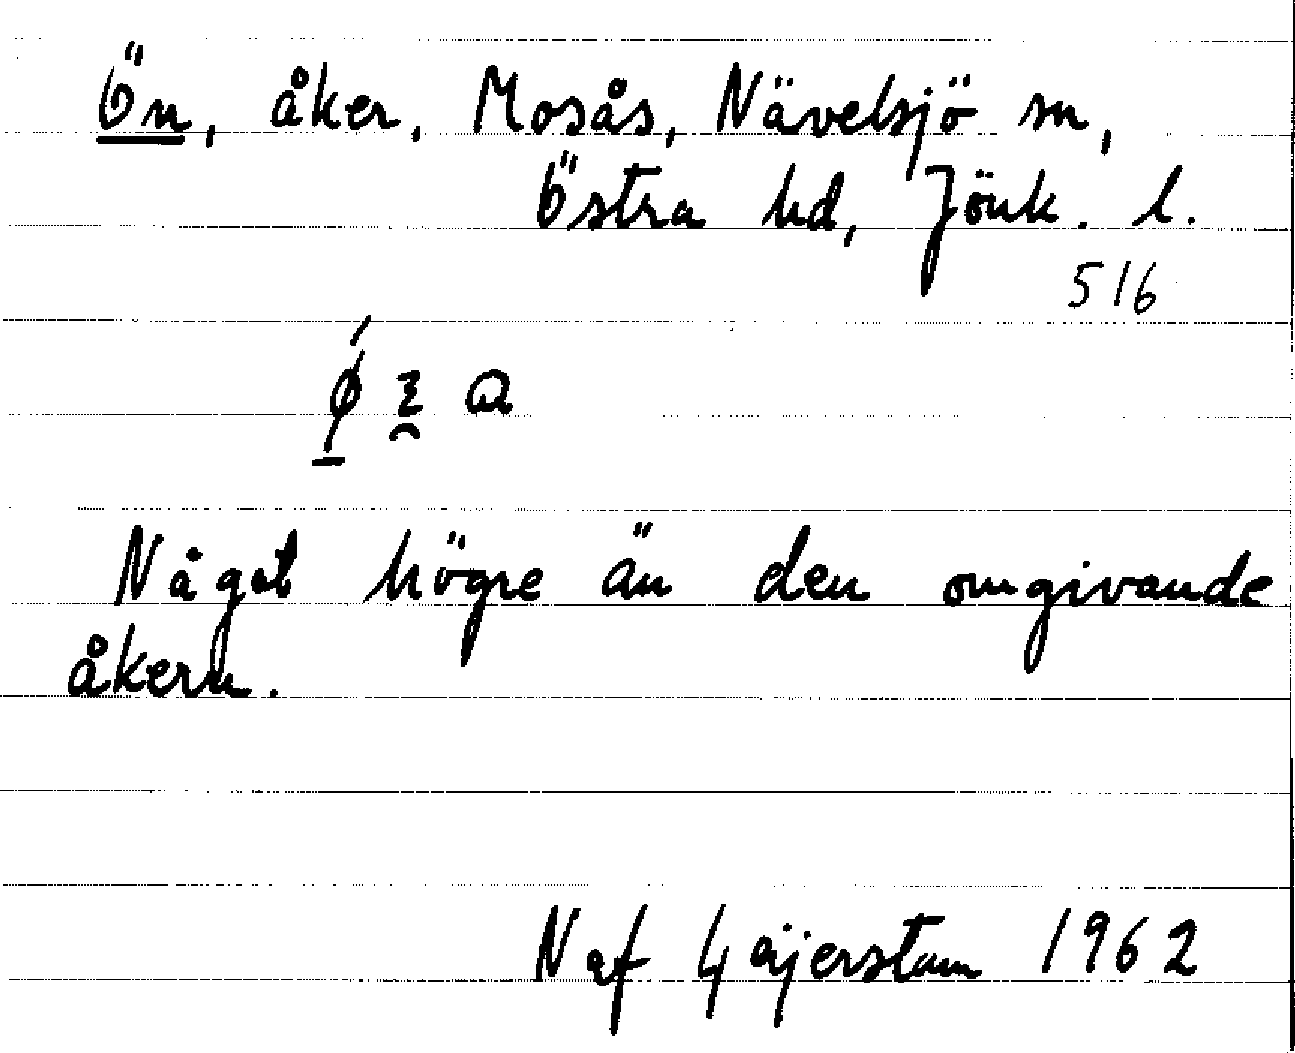 Ön, åker, Mosås, Nävelsjö sn,
Östra hd, Jönk. l.
516
Något högre än den omgivande
åkern.
N af Geijerstam 1962